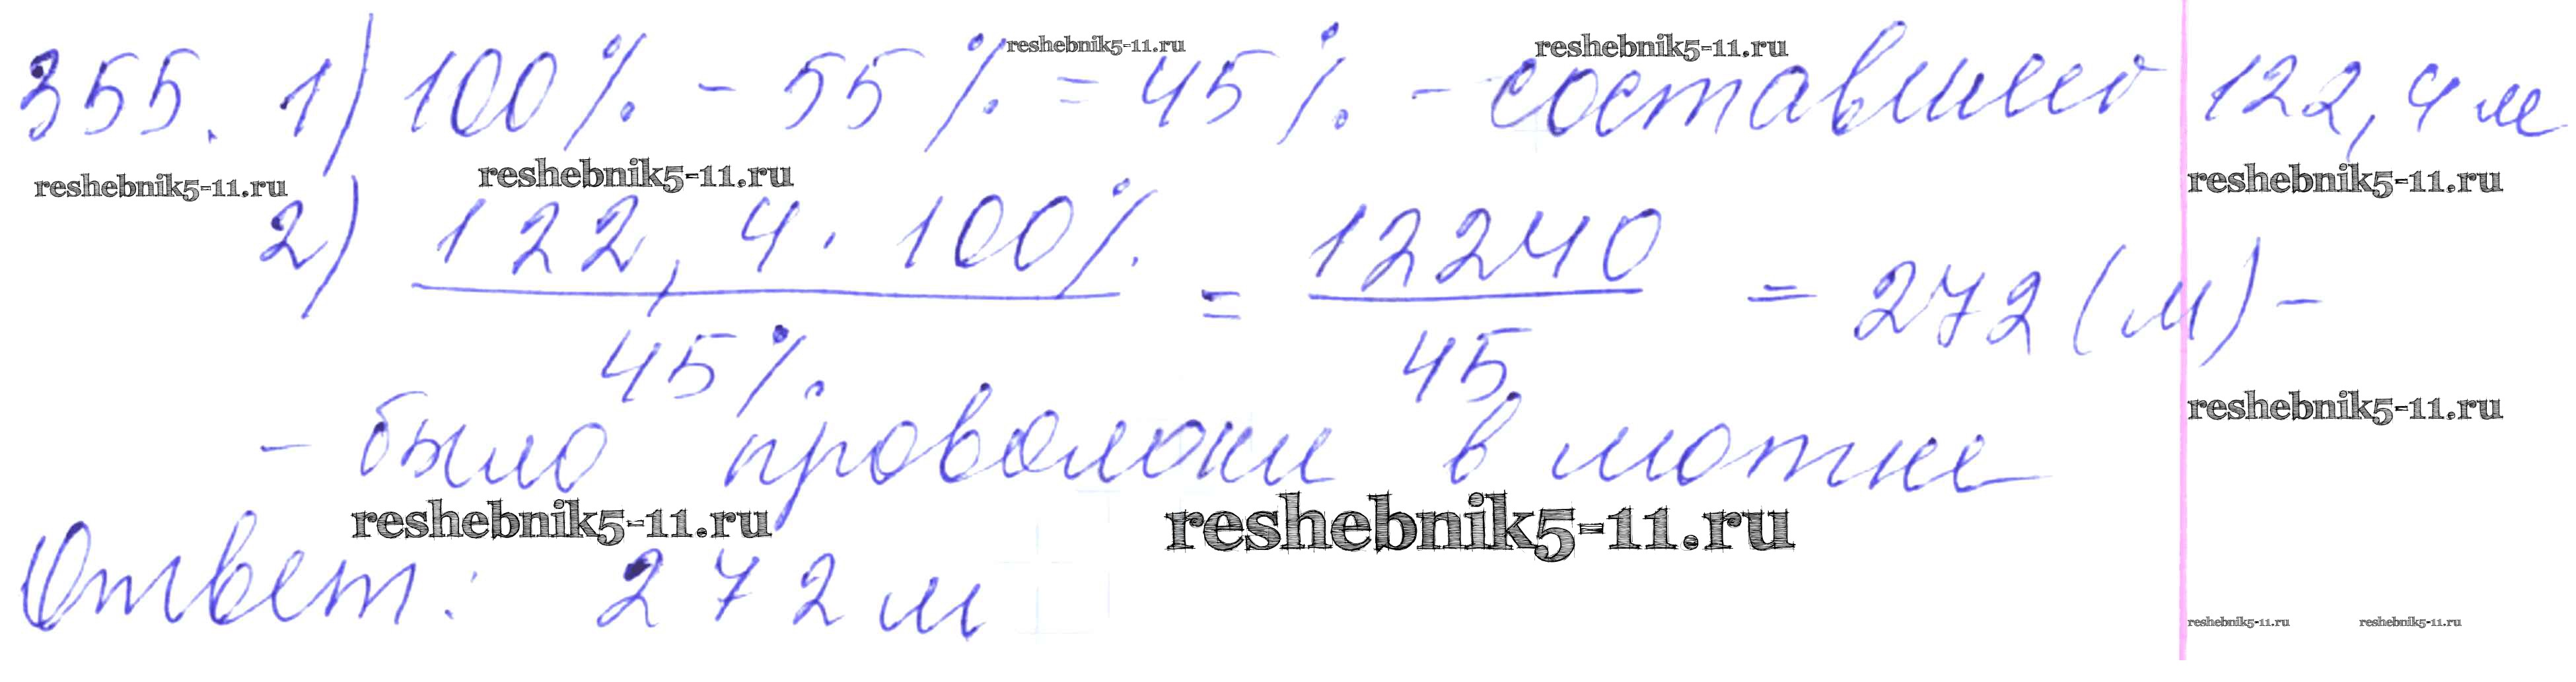 reshebnik5-11.ru reshebnik5-11.ru
355. 1) 100% - 55% = 45% - составляет 122,4 м
reshebnik5-11.ru reshebnik5-11.ru reshebnik5-11.ru
2) 122,4 · 100% / 45% = 12240 / 45 = 272 (м) -
reshebnik5-11.ru
- было проволоки в мотке
reshebnik5-11.ru reshebnik5-11.ru
Ответ: 272 м
reshebnik5-11.ru reshebnik5-11.ru